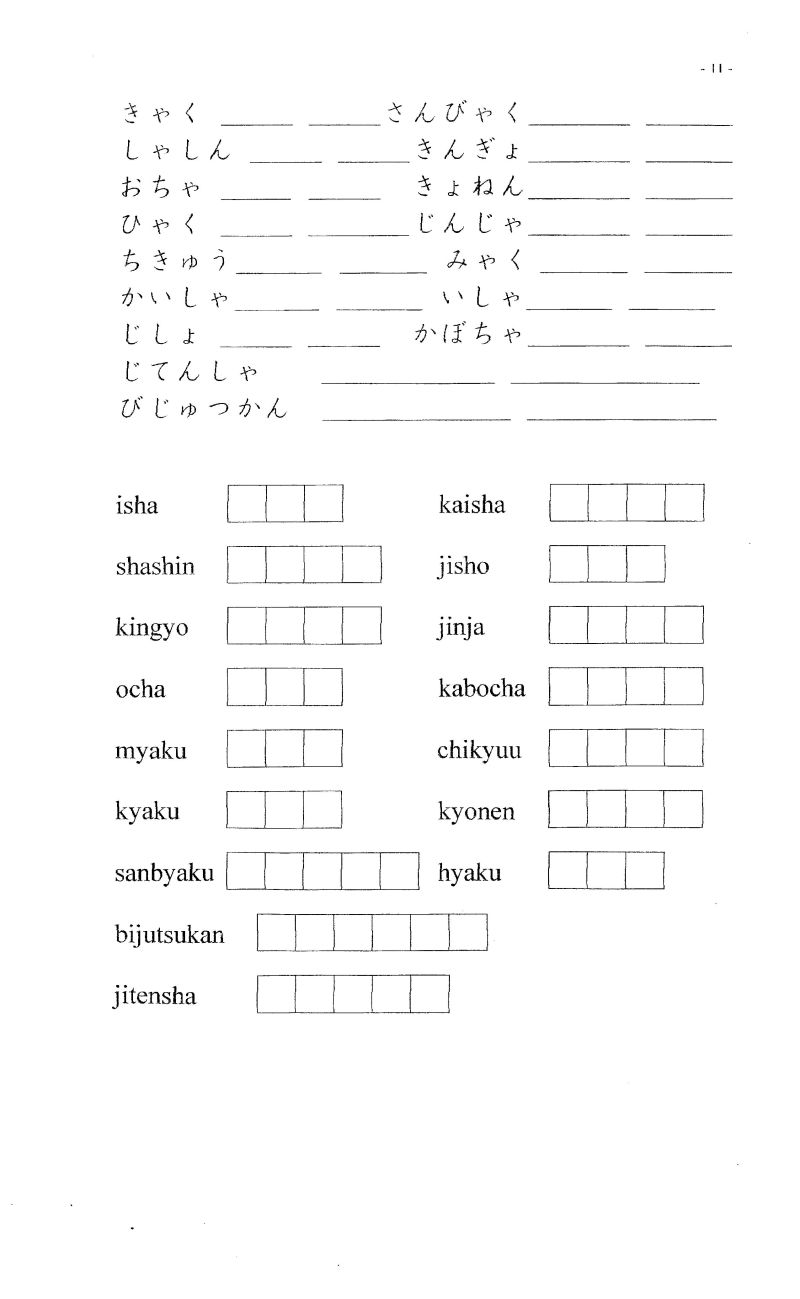 - 11 -
きゃく さんびゃく
しゃしん きんぎょ
おちゃ きょねん
ひゃく じんじゃ
ちきゅう みゃく
かいしゃ いしゃ
じしょ かぼちゃ
じてんしゃ
びじゅつかん
isha kaisha
shashin jisho
kingyo jinja
ocha kabocha
myaku chikyuu
kyaku kyonen
sanbyaku hyaku
bijutsukan
jitensha